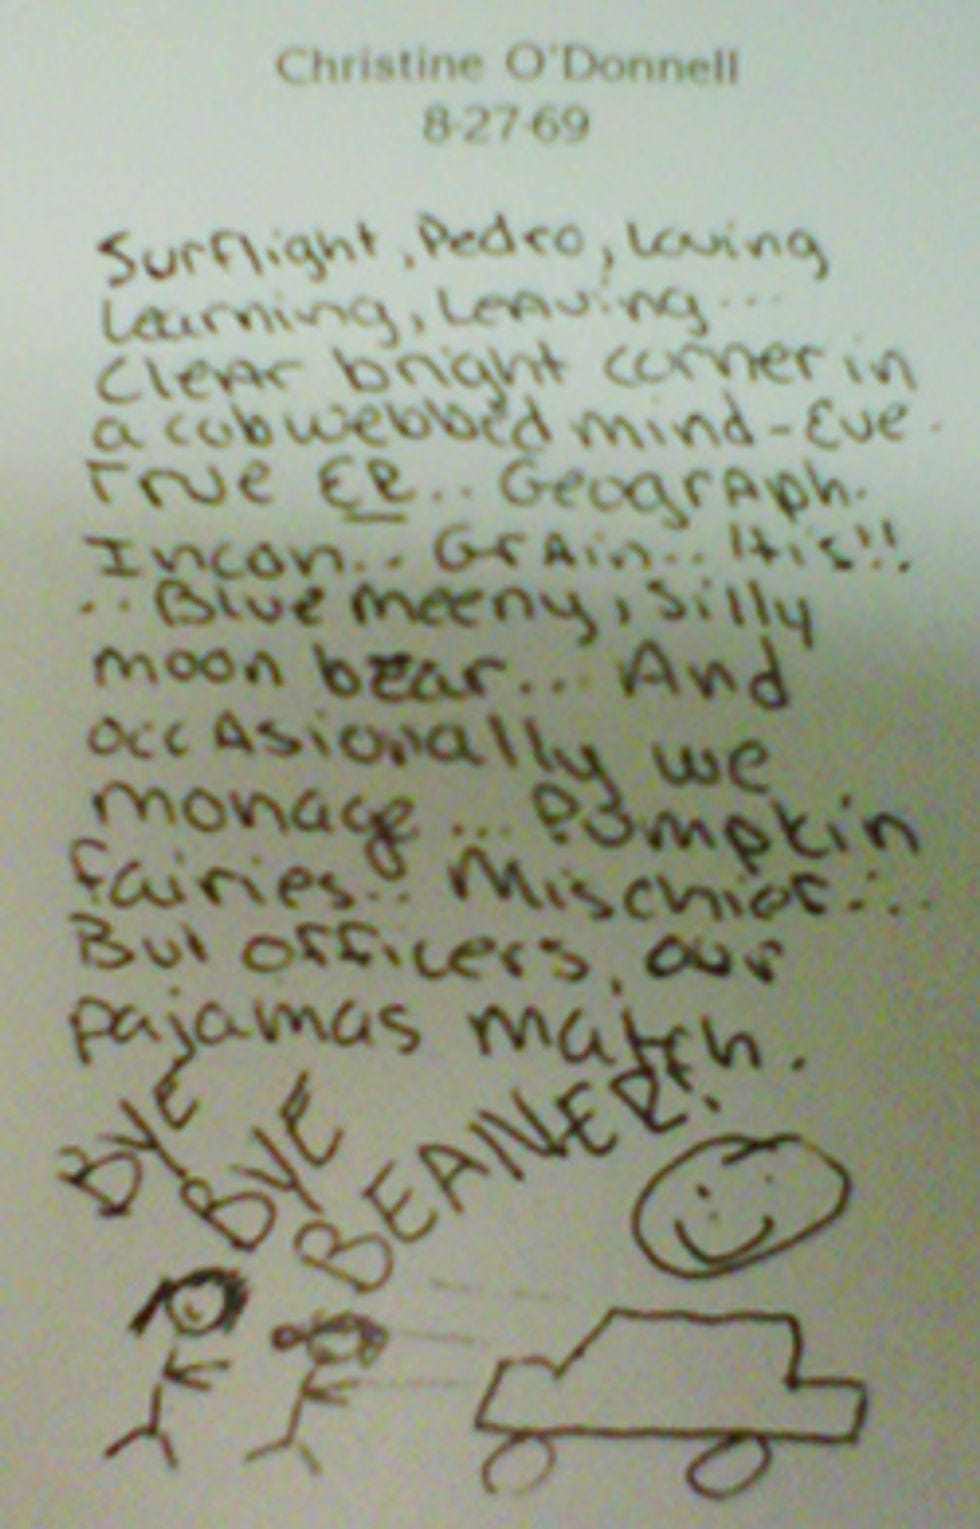 Christine O'Donnell
8-27-69
Surflight, Pedro, Loving
Learning, Leaving...
Clear bright corner in
a cobwebbed mind-Eve.
True ER.. Geograph.
Incon... Grain.. It is!!
...Blue meeny, silly
moon bear... And
occAsionally we
monage... Pumpkin
fairies... Mischief...
But officers, our
pajamas match.
BYE
BYE
BEANER!